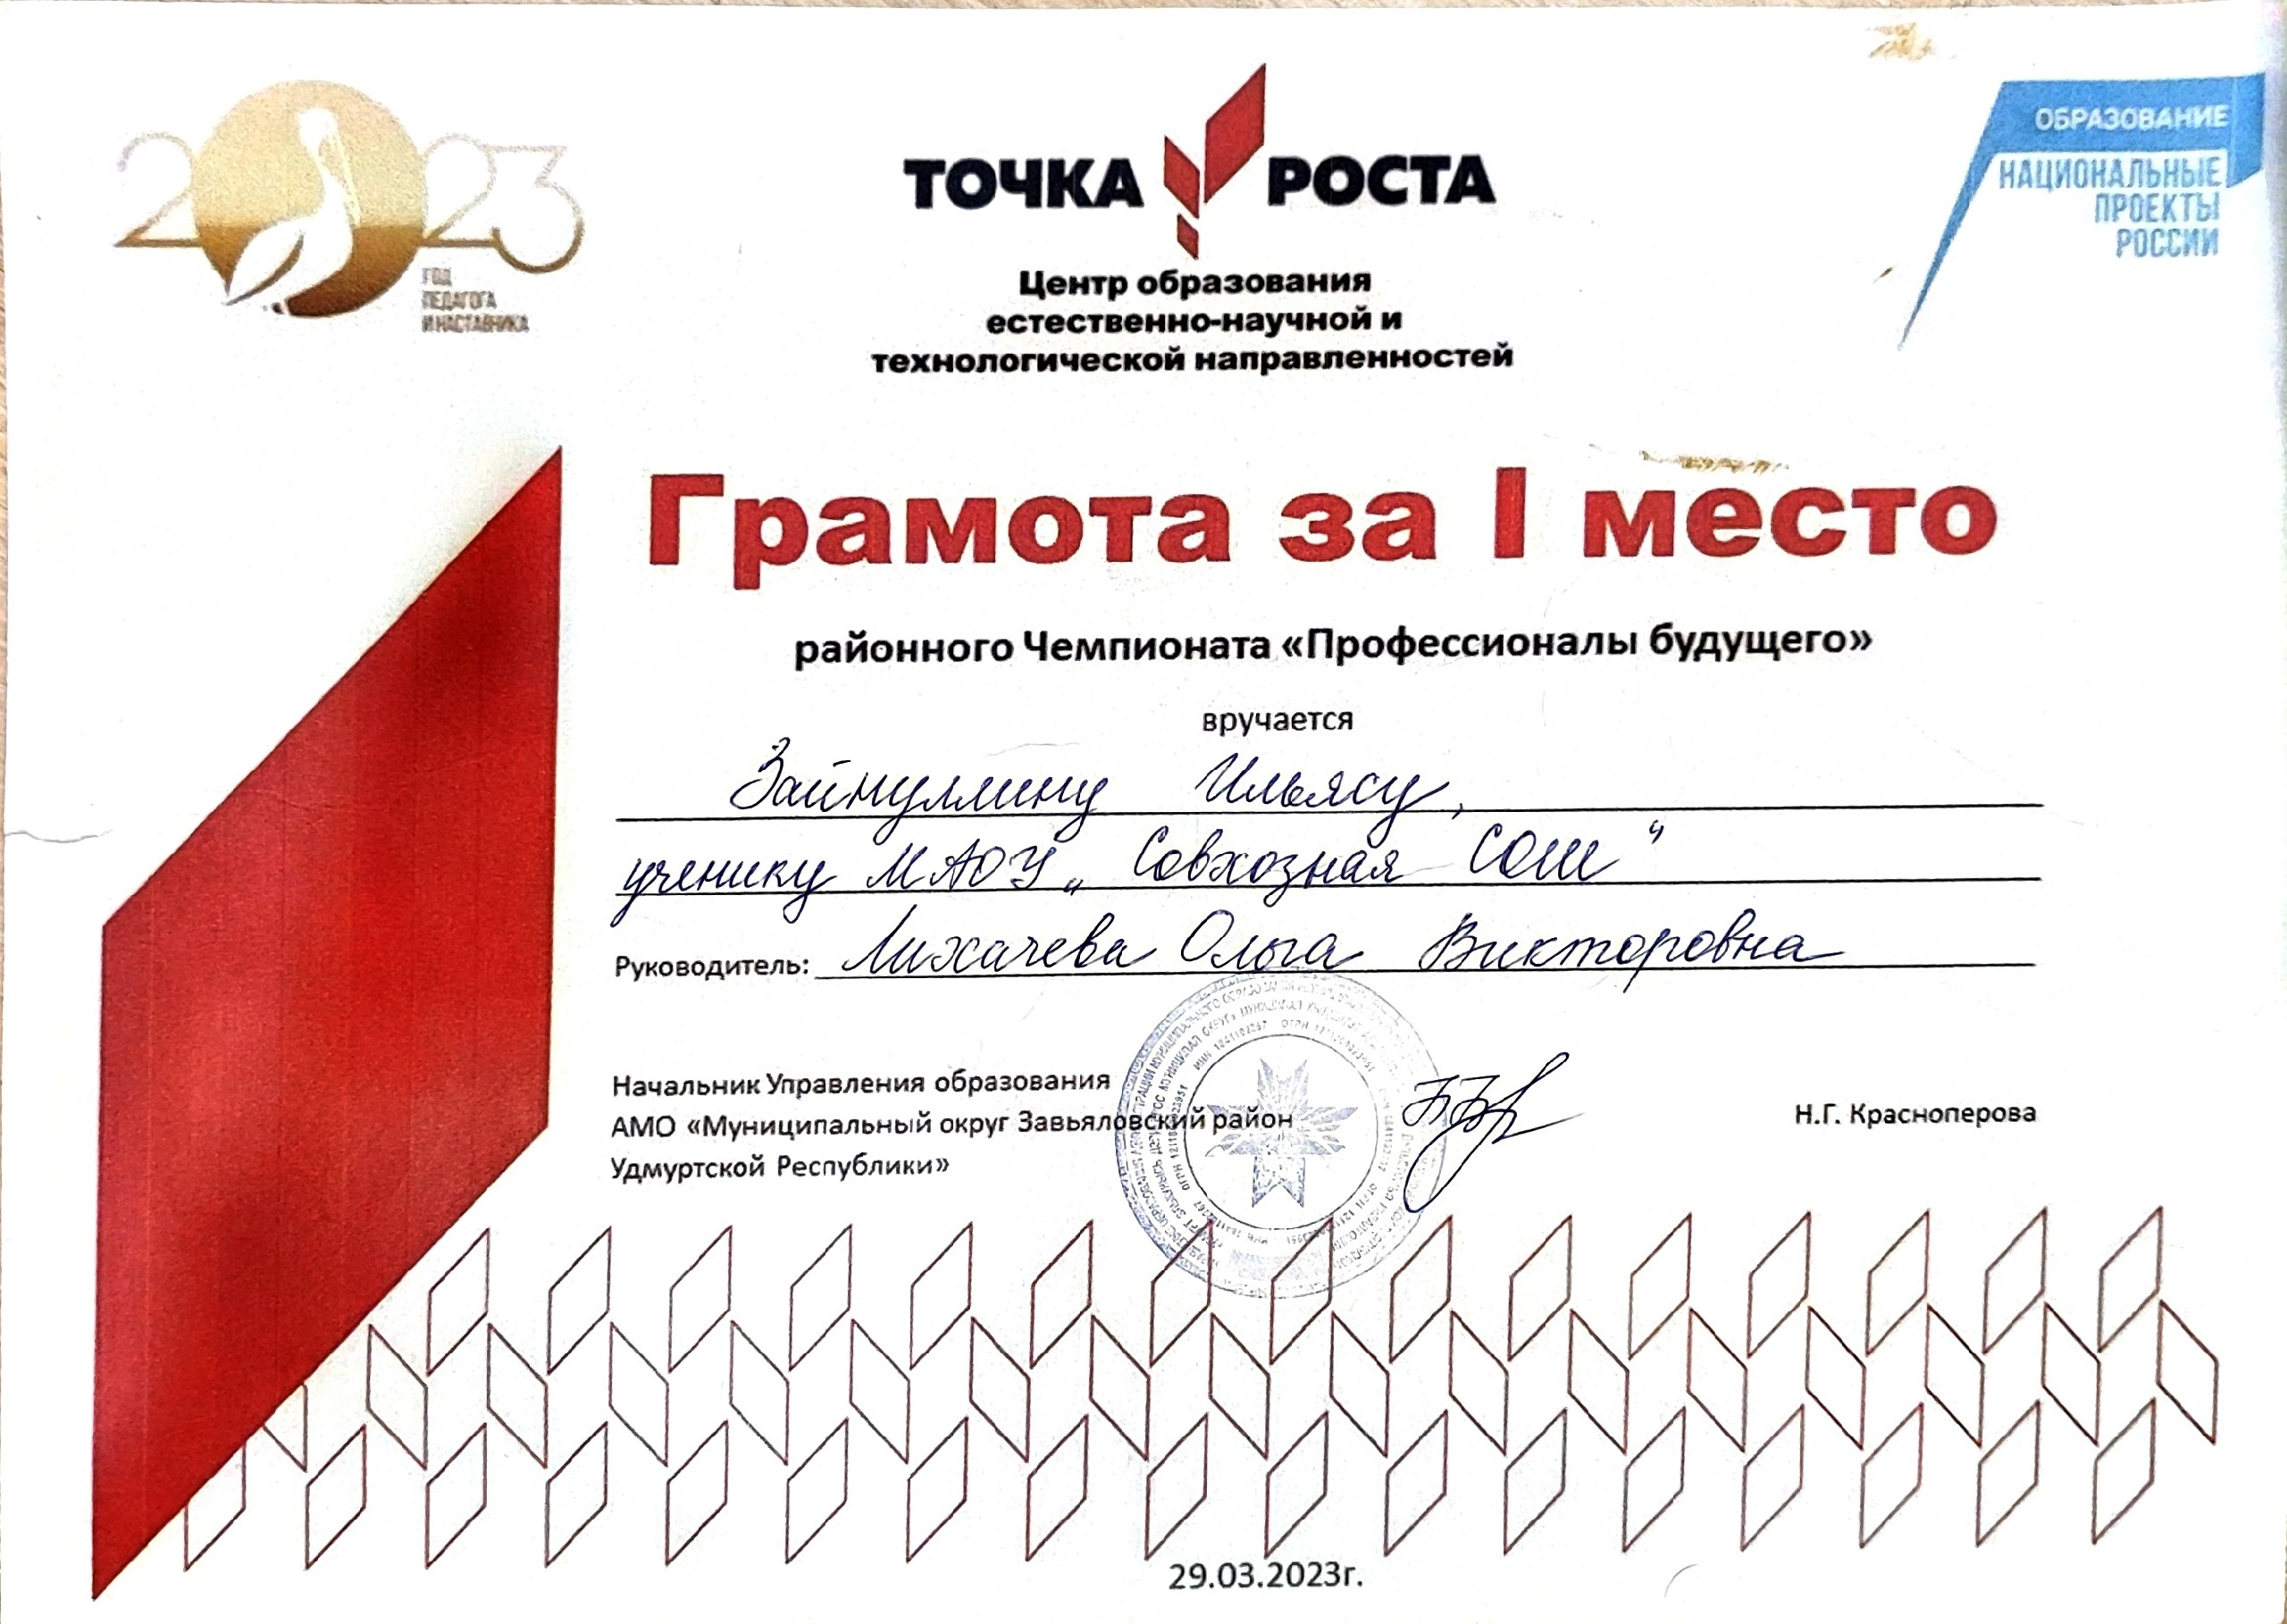 2023
ГОД
ПЕДАГОГА
И НАСТАВНИКА
ТОЧКА РОСТА
Центр образования
естественно-научной и
технологической направленностей
ОБРАЗОВАНИЕ
НАЦИОНАЛЬНЫЕ
ПРОЕКТЫ
РОССИИ
Грамота за I место
районного Чемпионата «Профессионалы будущего»
вручается
Зайнуллину Ильясу,
ученику МАОУ „Совхозная СОШ“
Руководитель: Лихачева Ольга Викторовна
Начальник Управления образования
АМО «Муниципальный округ Завьяловский район
Удмуртской Республики»
Н.Г. Красноперова
29.03.2023г.